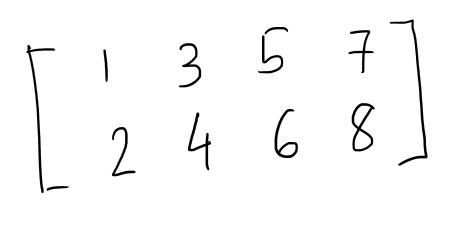 1 3 5 7
2 4 6 8